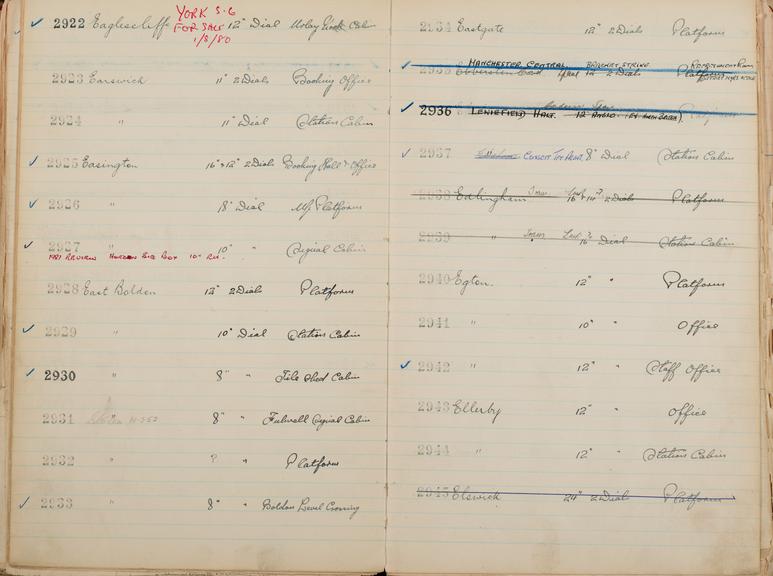 YORK S.G
FOR SALE
1/8/80
2922 Eaglescliffe 12" Dial Urlay Nook Cabin
2923 Earswick 11" 2 Dials Booking Office
2924 " 11" Dial Station Cabin
2925 Easington 16" & 12" 2 Dials Booking Hall & Office
2926 " 18" Dial Up Platform
2927 " 10" " Signal Cabin
1981 REVIEW HORDEN SIG BOX 10"
2928 East Boldon 12" 2 Dials Platforms
2929 " 10" Dial Station Cabin
2930 " 8" " Tile Shed Cabin
2931 " 8" " Fulwell Signal Cabin
2932 " ? " Platform
2933 " 8" " Boldon Level Crossing
2934 Eastgate 12" 2 Dials Platform
MANCHESTER CENTRAL
2935 2 Dials Platform
2936 HALT 12"
2937 8" Dial Station Cabin
2938 Edlingham 2 Dials Platform
2939 " Dial Station Cabin
2940 Egton 12" " Platform
2941 " 10" " Office
2942 " 12" " Staff Office
2943 Ellerby 12" " Office
2944 " 12" " Station Cabin
2945 Elswick 24" 2 Dial Platform